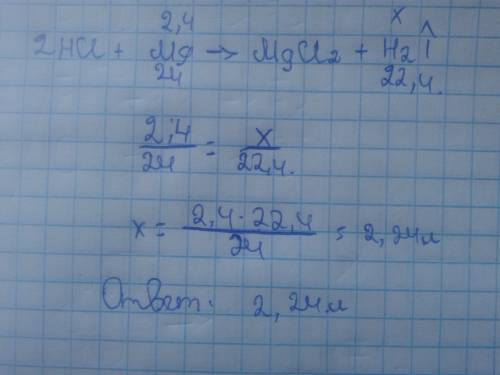 2,4 x
2HCl + Mg → MgCl2 + H2↑
24 22,4.
2,4/24 = x/22,4.
x = 2,4·22,4/24 = 2,24л
Ответ: 2,24л